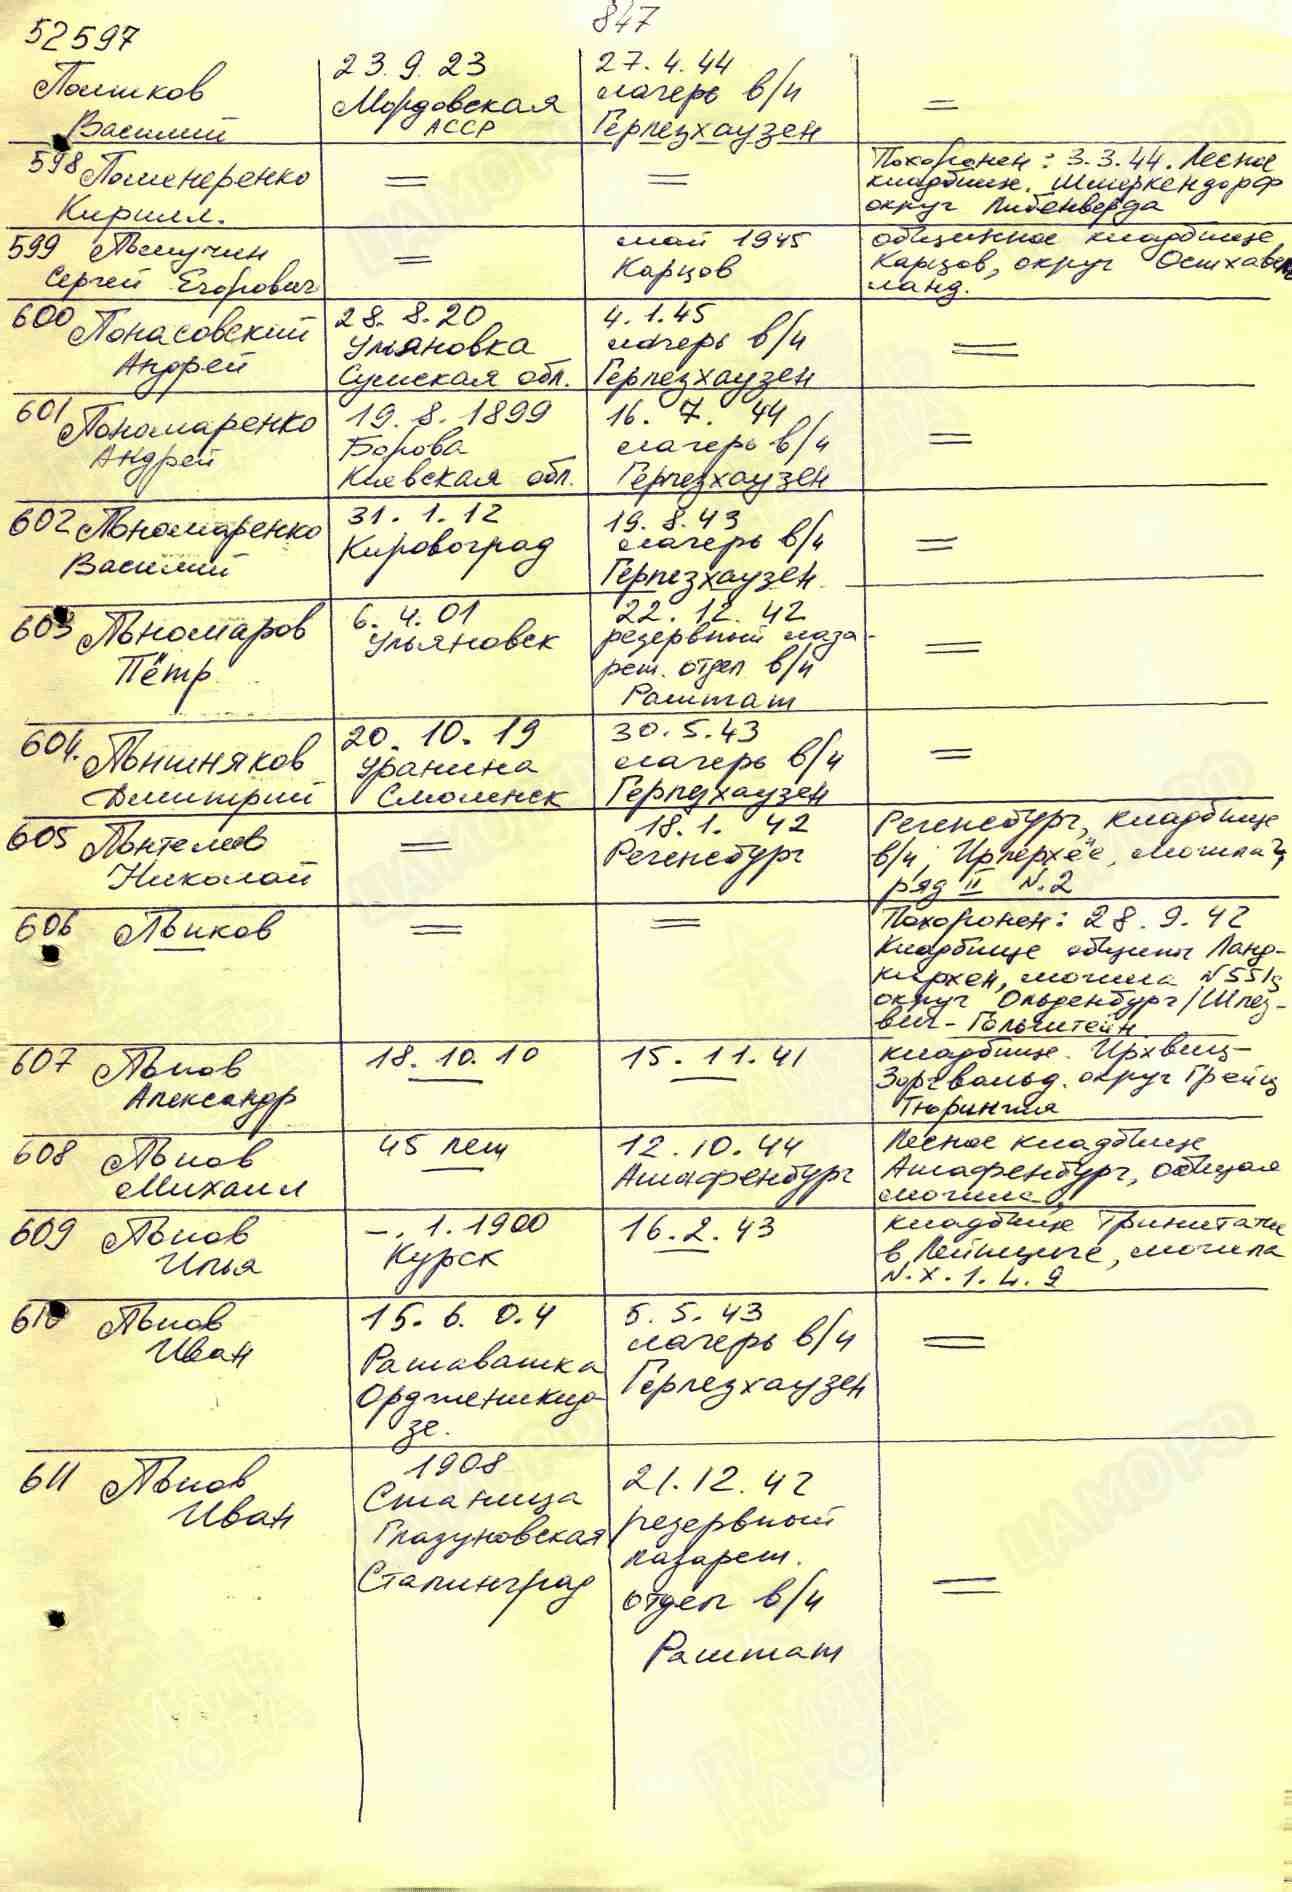 847
52597
Полшков
Василий
23.9.23
Мордовская
АССР
27.4.44
лагерь в/ч
Герлезхаузен
=
598 Поменеренко
Кирилл.
=
=
Похоронен: 3.3.44. Лесное
кладбище. Шмеркендорф
округ Либенверда
599 Помучин
Сергей Егорович
=
май 1945
Карцов
общинное кладбище
Карцов, округ Остхавель
ланд.
600 Понасовский
Андрей
28.8.20
Ульяновка
Сумская обл.
4.1.45
лагерь в/ч
Герлезхаузен
=
601 Пономаренко
Андрей
19.8.1899
Борова
Киевская обл.
16.7.44
лагерь в/ч
Герлезхаузен
=
602 Пономаренко
Василий
31.1.12
Кировоград
19.8.43
лагерь в/ч
Герлезхаузен
=
603 Пономаров
Пётр
6.4.01
Ульяновск
22.12.42
резервный лаза-
рет. отдел в/ч
Раштат
=
604. Поншняков
Дмитрий
20.10.19
Уранина
Смоленск
30.5.43
лагерь в/ч
Герлезхаузен
=
605 Понтелеев
Николай
=
18.1.42
Регенсбург
Регенсбург, кладбище
в/ч, Ирлерхёе, могила
ряд II N.2
606 Поиков
=
=
Похоронен: 28.9.42
Кладбище общины Ланд-
кирхен, могила N551
округ Ольденбург/Шлез-
виг-Гольштейн
607 Попов
Александр
18.10.10
15.11.41
кладбище. Ирхвиц-
Зоргвальд. округ Грейц
Тюрингия
608 Попов
Михаил
45 лет
12.10.44
Ашафенбург
Лесное кладбище
Ашафенбург, общая
могила
609 Попов
Илья
-.1.1900
Курск
16.2.43
кладбище Тринитати
в Лейпциге, могила
N.X.1.4.9
610 Попов
Иван
15.6.04
Рашавашка
Орджоникид-
зе.
5.5.43
лагерь в/ч
Герлезхаузен
=
611 Попов
Иван
1908
Станица
Глазуновская
Сталинград
21.12.42
резервный
лазарет.
отдел в/ч
Раштат
=
ПАМЯТЬ
НАРОДА